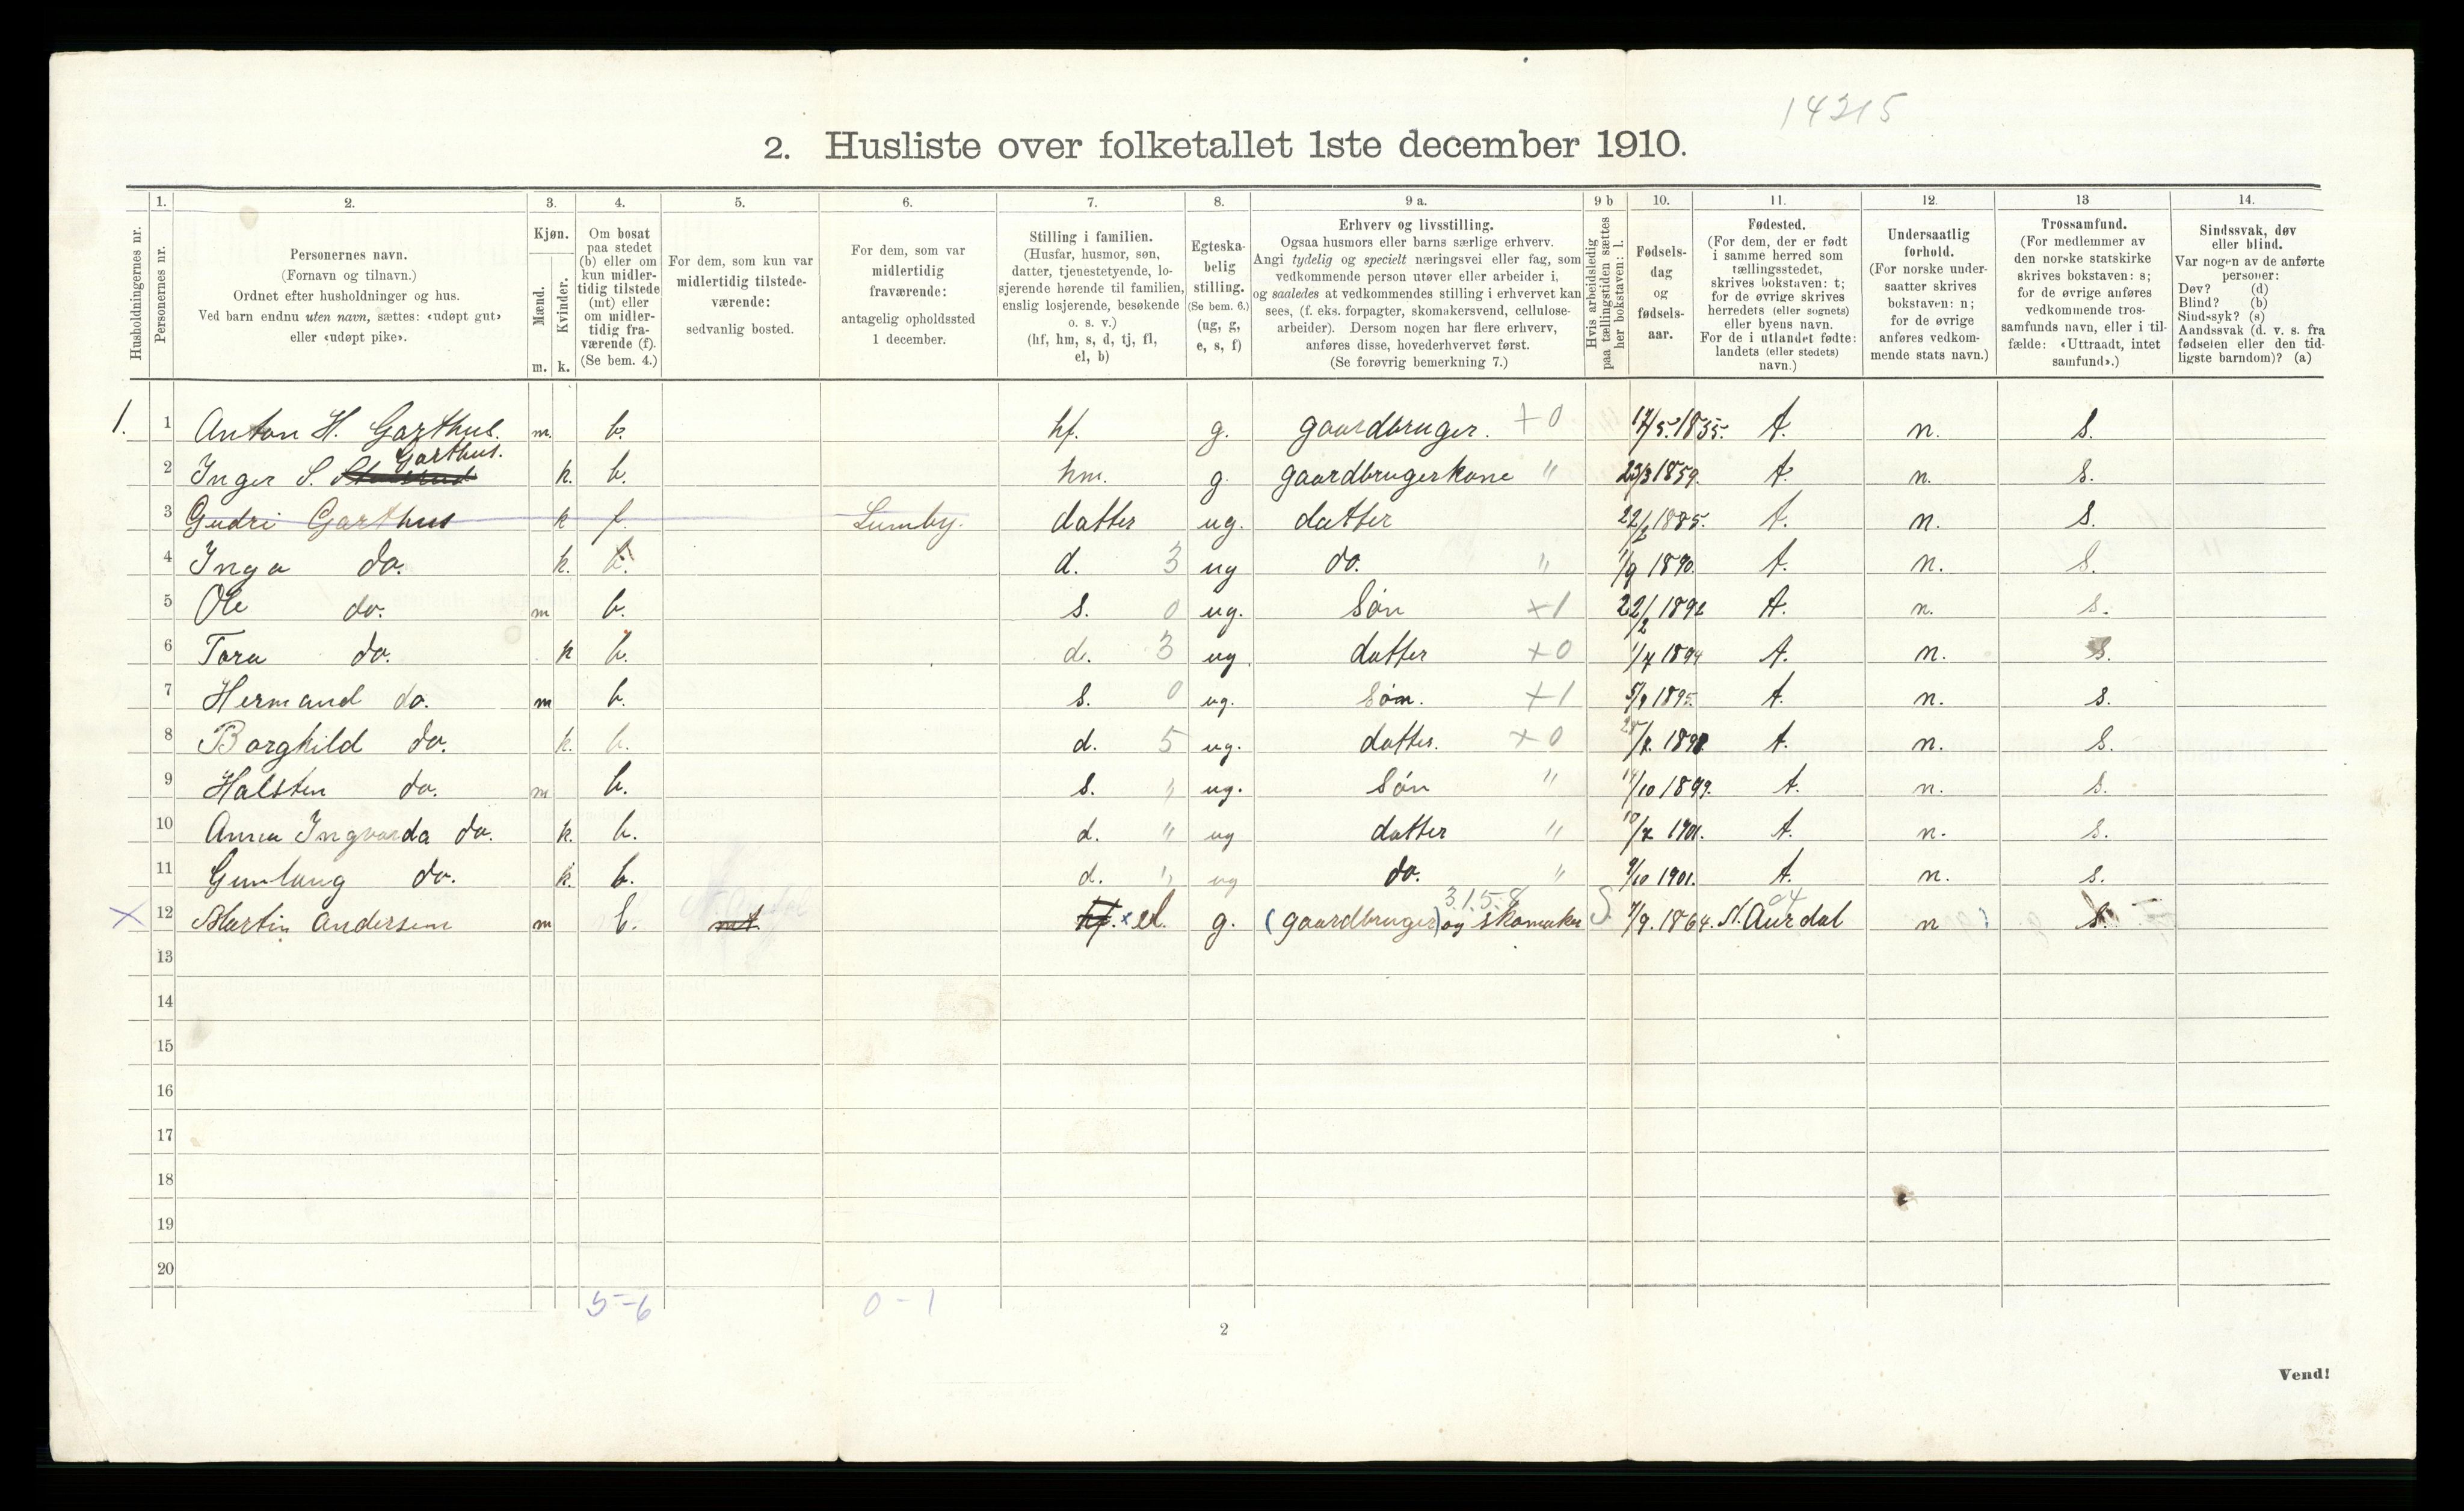 14215
2. Husliste over folketallet 1ste december 1910.
Husholdningernes nr.
1.
Personernes nr.
2.
Personernes navn.
(Fornavn og tilnavn.)
Ordnet efter husholdninger og hus.
Ved barn endnu uten navn, sættes: «udøpt gut»
eller «udøpt pike».
3.
Kjøn.
Mænd.
Kvinder.
m. k.
4.
Om bosat
paa stedet
(b) eller om
kun midler-
tidig tilstede
(mt) eller
om midler-
tidig fra-
værende (f).
(Se bem. 4.)
5.
For dem, som kun var
midlertidig tilstede-
værende:
sedvanlig bosted.
6.
For dem, som var
midlertidig
fraværende:
antagelig opholdssted
1 december.
7.
Stilling i familien.
(Husfar, husmor, søn,
datter, tjenestetyende, lo-
sjerende hørende til familien,
enslig losjerende, besøkende
o. s. v.)
(hf, hm, s, d, tj, fl,
el, b)
8.
Egteska-
belig
stilling.
(Se bem. 6.)
(ug, g,
e, s, f)
9 a.
Erhverv og livsstilling.
Ogsaa husmors eller barns særlige erhverv.
Angi tydelig og specielt næringsvei eller fag, som
vedkommende person utøver eller arbeider i,
og saaledes at vedkommendes stilling i erhvervet kan
sees, (f. eks. forpagter, skomakersvend, cellulose-
arbeider). Dersom nogen har flere erhverv,
anføres disse, hovederhvervet først.
(Se forøvrig bemerkning 7.)
9 b
Hvis arbeidsledig
paa tællingstiden sættes
her bokstaven: l.
10.
Fødsels-
dag
og
fødsels-
aar.
11.
Fødested.
(For dem, der er født
i samme herred som
tællingsstedet,
skrives bokstaven: t;
for de øvrige skrives
herredets (eller sognets)
eller byens navn.
For de i utlandet fødte:
landets (eller stedets)
navn.)
12.
Undersaatlig
forhold.
(For norske under-
saatter skrives
bokstaven: n;
for de øvrige
anføres vedkom-
mende stats navn.)
13
Trossamfund.
(For medlemmer av
den norske statskirke
skrives bokstaven: s;
for de øvrige anføres
vedkommende tros-
samfunds navn, eller i til-
fælde: «Uttraadt, intet
samfund».)
14.
Sindssvak, døv
eller blind.
Var nogen av de anførte
personer:
Døv? (d)
Blind? (b)
Sindssyk? (s)
Aandssvak (d. v. s. fra
fødselen eller den tid-
ligste barndom)? (a)
1. 1 Anton H. Garthus. m. b. hf. g. gaardbruger. +0 17/5.1835. t. n. s.
Garthus.
2 Inger S. k. b. hm. g. gaardbrugerkone " 23/3 1859. t. n. s.
3 Gudri Garthus k f. Lumby. datter ug. datter 22/2 1885. t. n. s.
4 Inga do. k. b. d. 3 ug do. " 1/9 1890. t. n. s.
5 Ole do. m b. s. 0 ug. Søn +1 22/2 1892 t. n. s.
6 Tora do. k b. d. 3 ug datter +0 1/4 1894 t. n. s.
7 Hermand do. m b. s. 0 ug. Søn. +1 5/9 1895. t. n. s.
8 Borghild do. k. b. d. 5 ug. datter. +0 t. n. s.
9 Halsten do. m b. s. " ug. Søn " 14/10 1899. t. n. s.
10 Anna Ingvarda do. k. b. d. " ug datter " 10/7 1901. t. n. s.
11 Gunlaug do. k. b. d. " ug do. " 9/10 1901. t. n. s.
3.1.5.8 04
x 12 Martin Andersen m b. mt. hf. x el. g. (gaardbruger) og skomaker S. 7/9. 1864. N. Aurdal n s.
13
14
15
16
17
18
19
20
5-6 0-1
2
Vend!